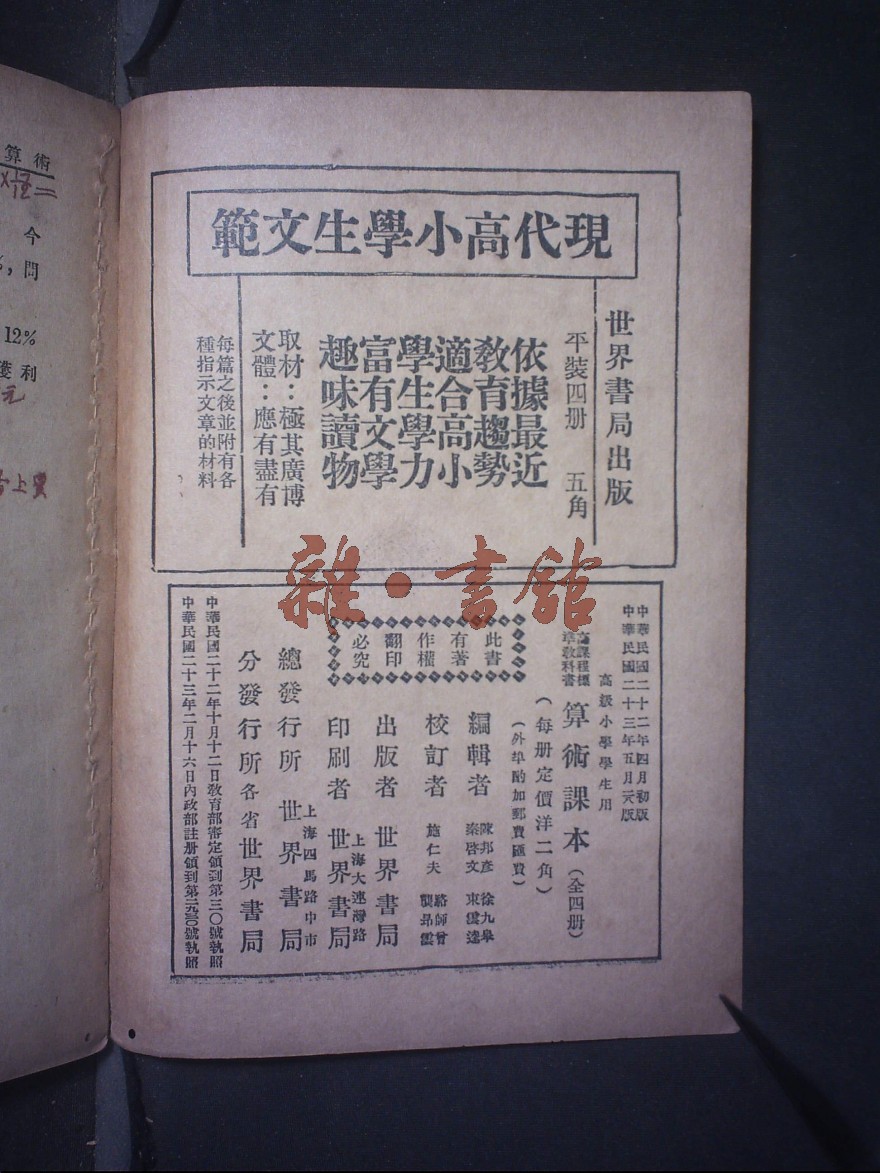 現代高小學生文範
世界書局出版
平裝四册　五角
依據最近
教育趨勢
適合高小
學生學力
富有文學
趣味讀物
取材：極其廣博
文體：應有盡有
每篇之後並附有各
種指示文章的材料
雜·書館
中華民國二十二年四月初版
中華民國二十三年五月版
高級小學學生用
課程標
準教科書
算術課本（全四册）
（每册定價洋二角）
（外埠酌加郵費匯費）
此書
有著
作權
翻印
必究
編輯者　陳邦彥　徐九皋
秦啓文　束雲逵
校訂者　施仁夫　駱師曾
龔昂雲
出版者　世界書局
印刷者　上海大連灣路
世界書局
總發行所　上海四馬路中市
世界書局
分發行所　各省世界書局
中華民國二十二年十月十二日教育部審定領到第三〇號執照
中華民國二十三年二月十六日內政部註册領到第號執照
算術
今
問
12%
獲利
元